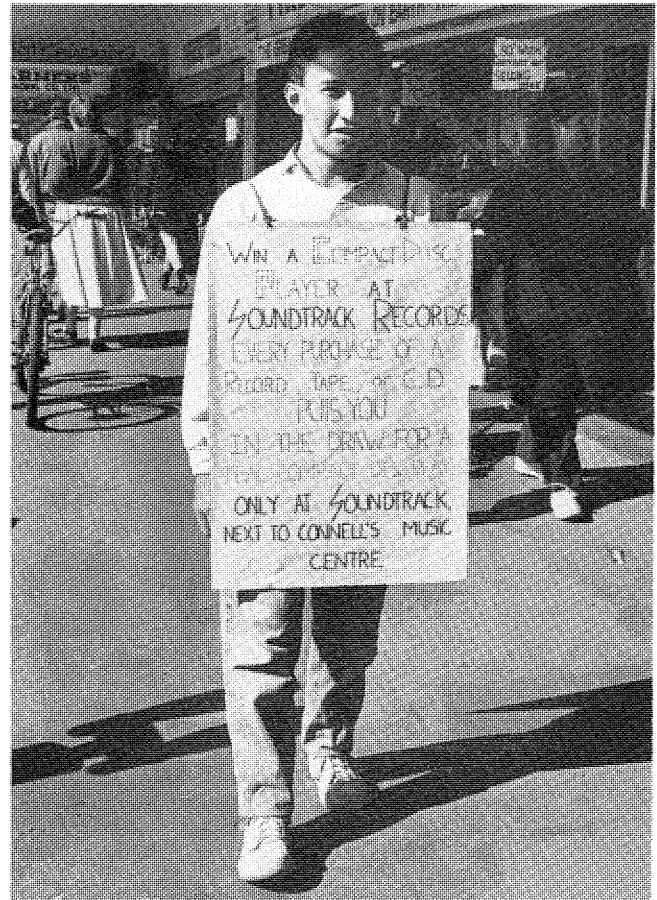 WIN A COMPACT DISC
PLAYER AT
SOUNDTRACK RECORDS
EVERY PURCHASE OF A
RECORD, TAPE, OR C.D.
PUTS YOU
IN THE DRAW FOR A
ONLY AT SOUNDTRACK,
NEXT TO CONNELL'S MUSIC
CENTRE